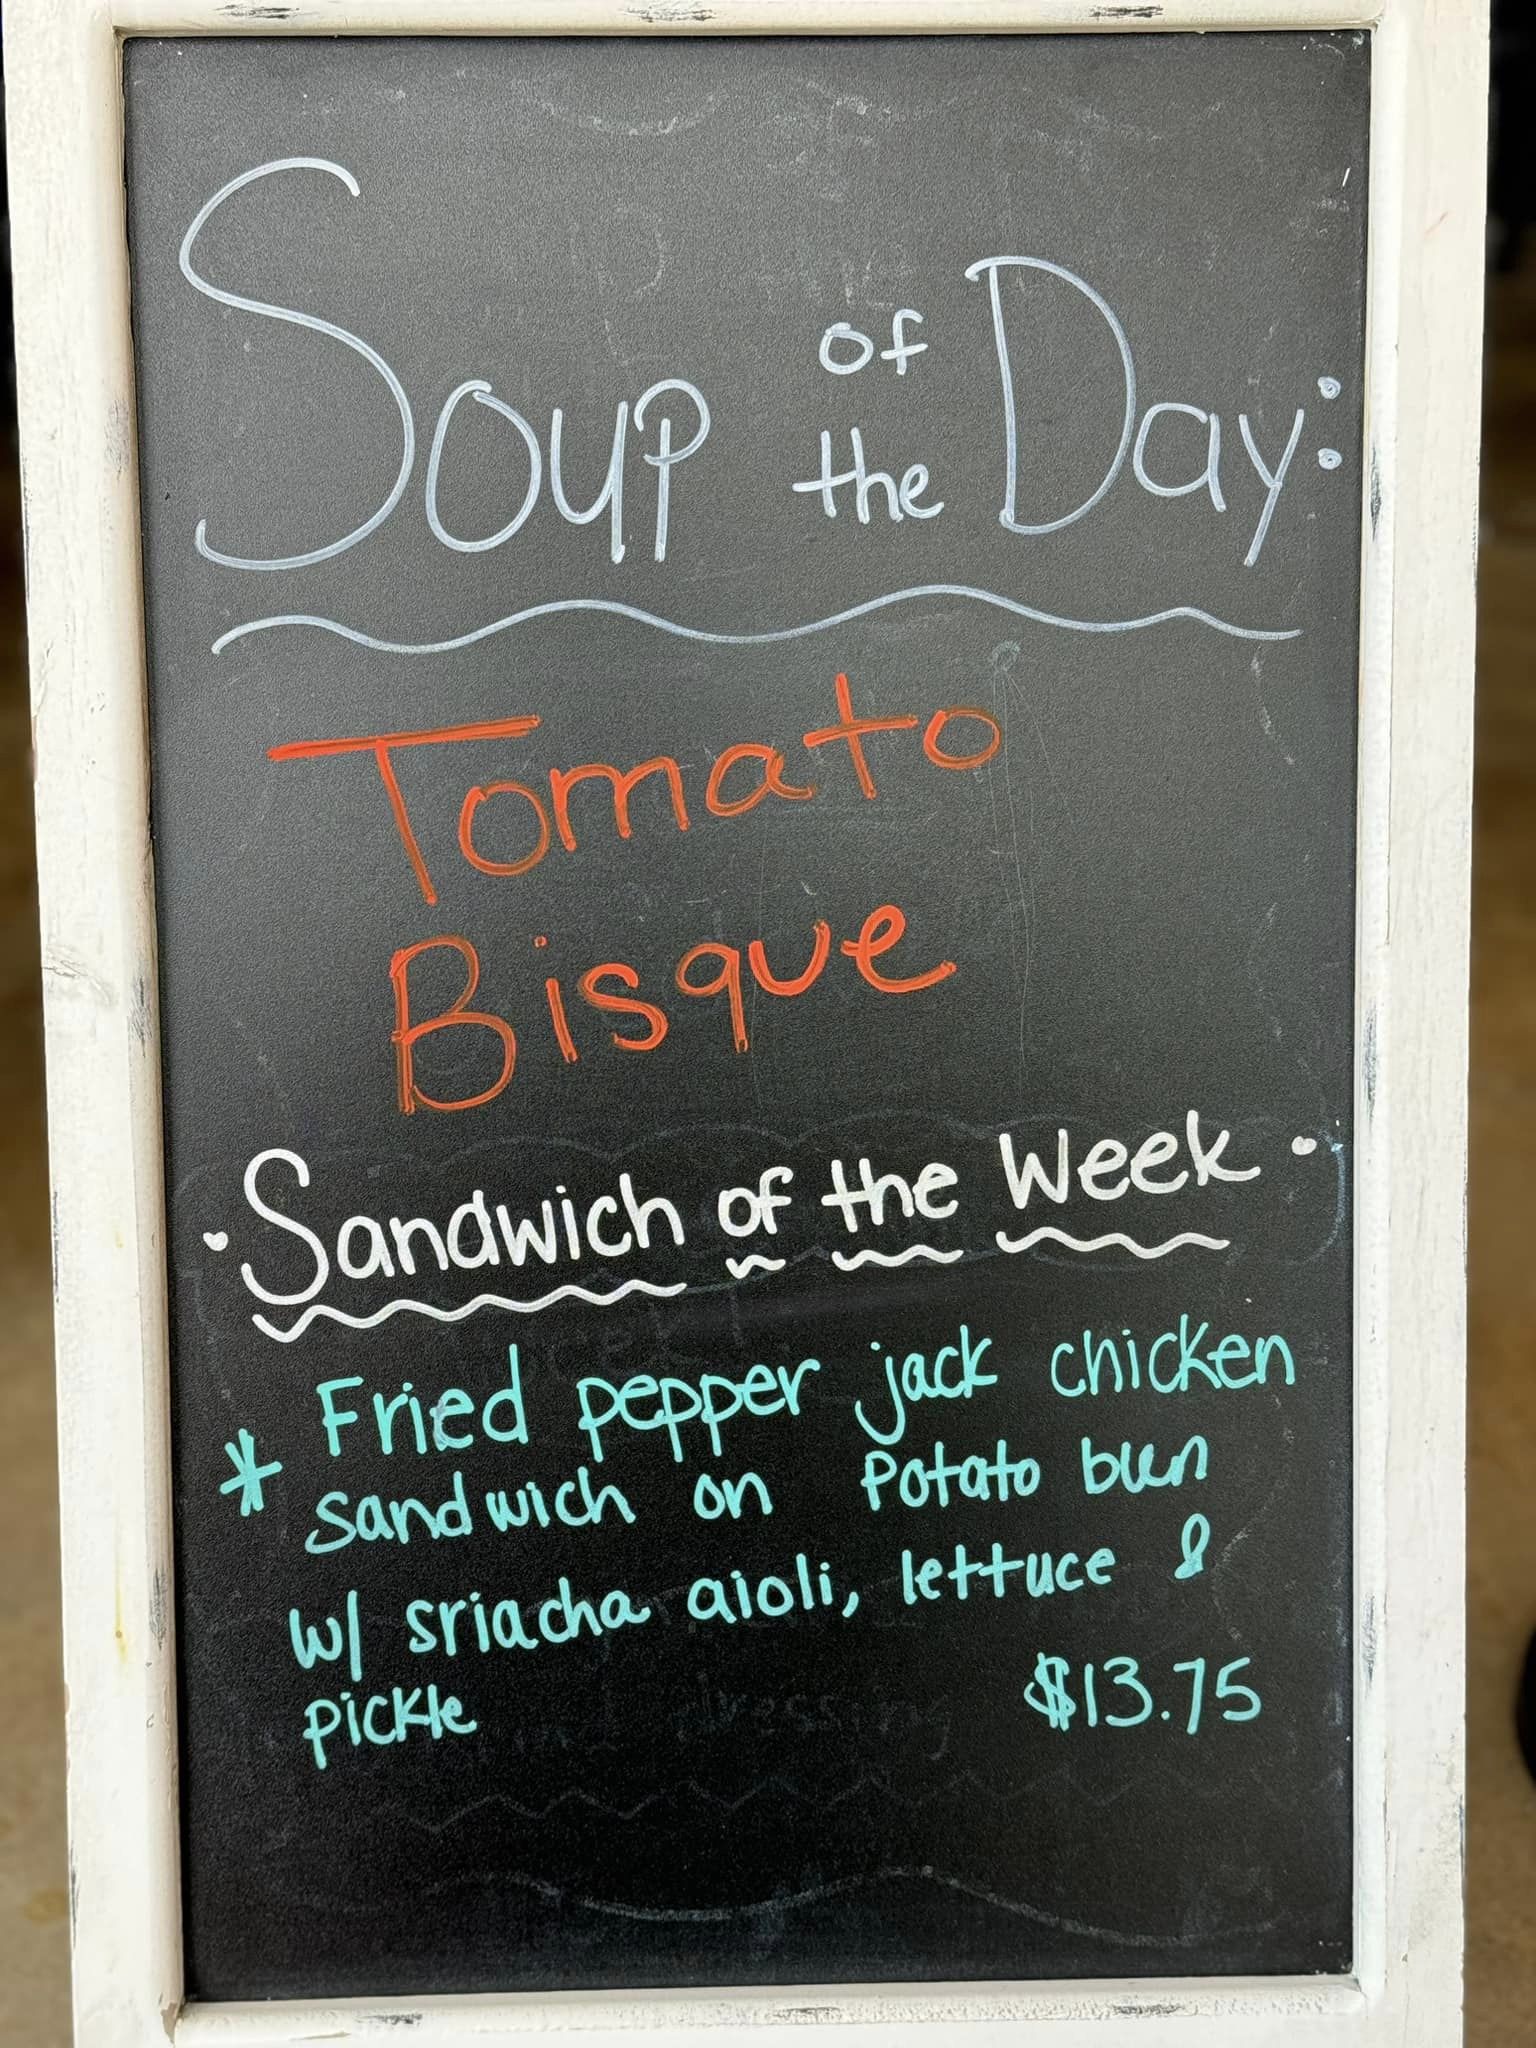 Soup of the Day:
Tomato
Bisque
• Sandwich of the Week •
* Fried pepper jack chicken
sandwich on Potato bun
w/ sriacha aioli, lettuce &
pickle $13.75
dressing